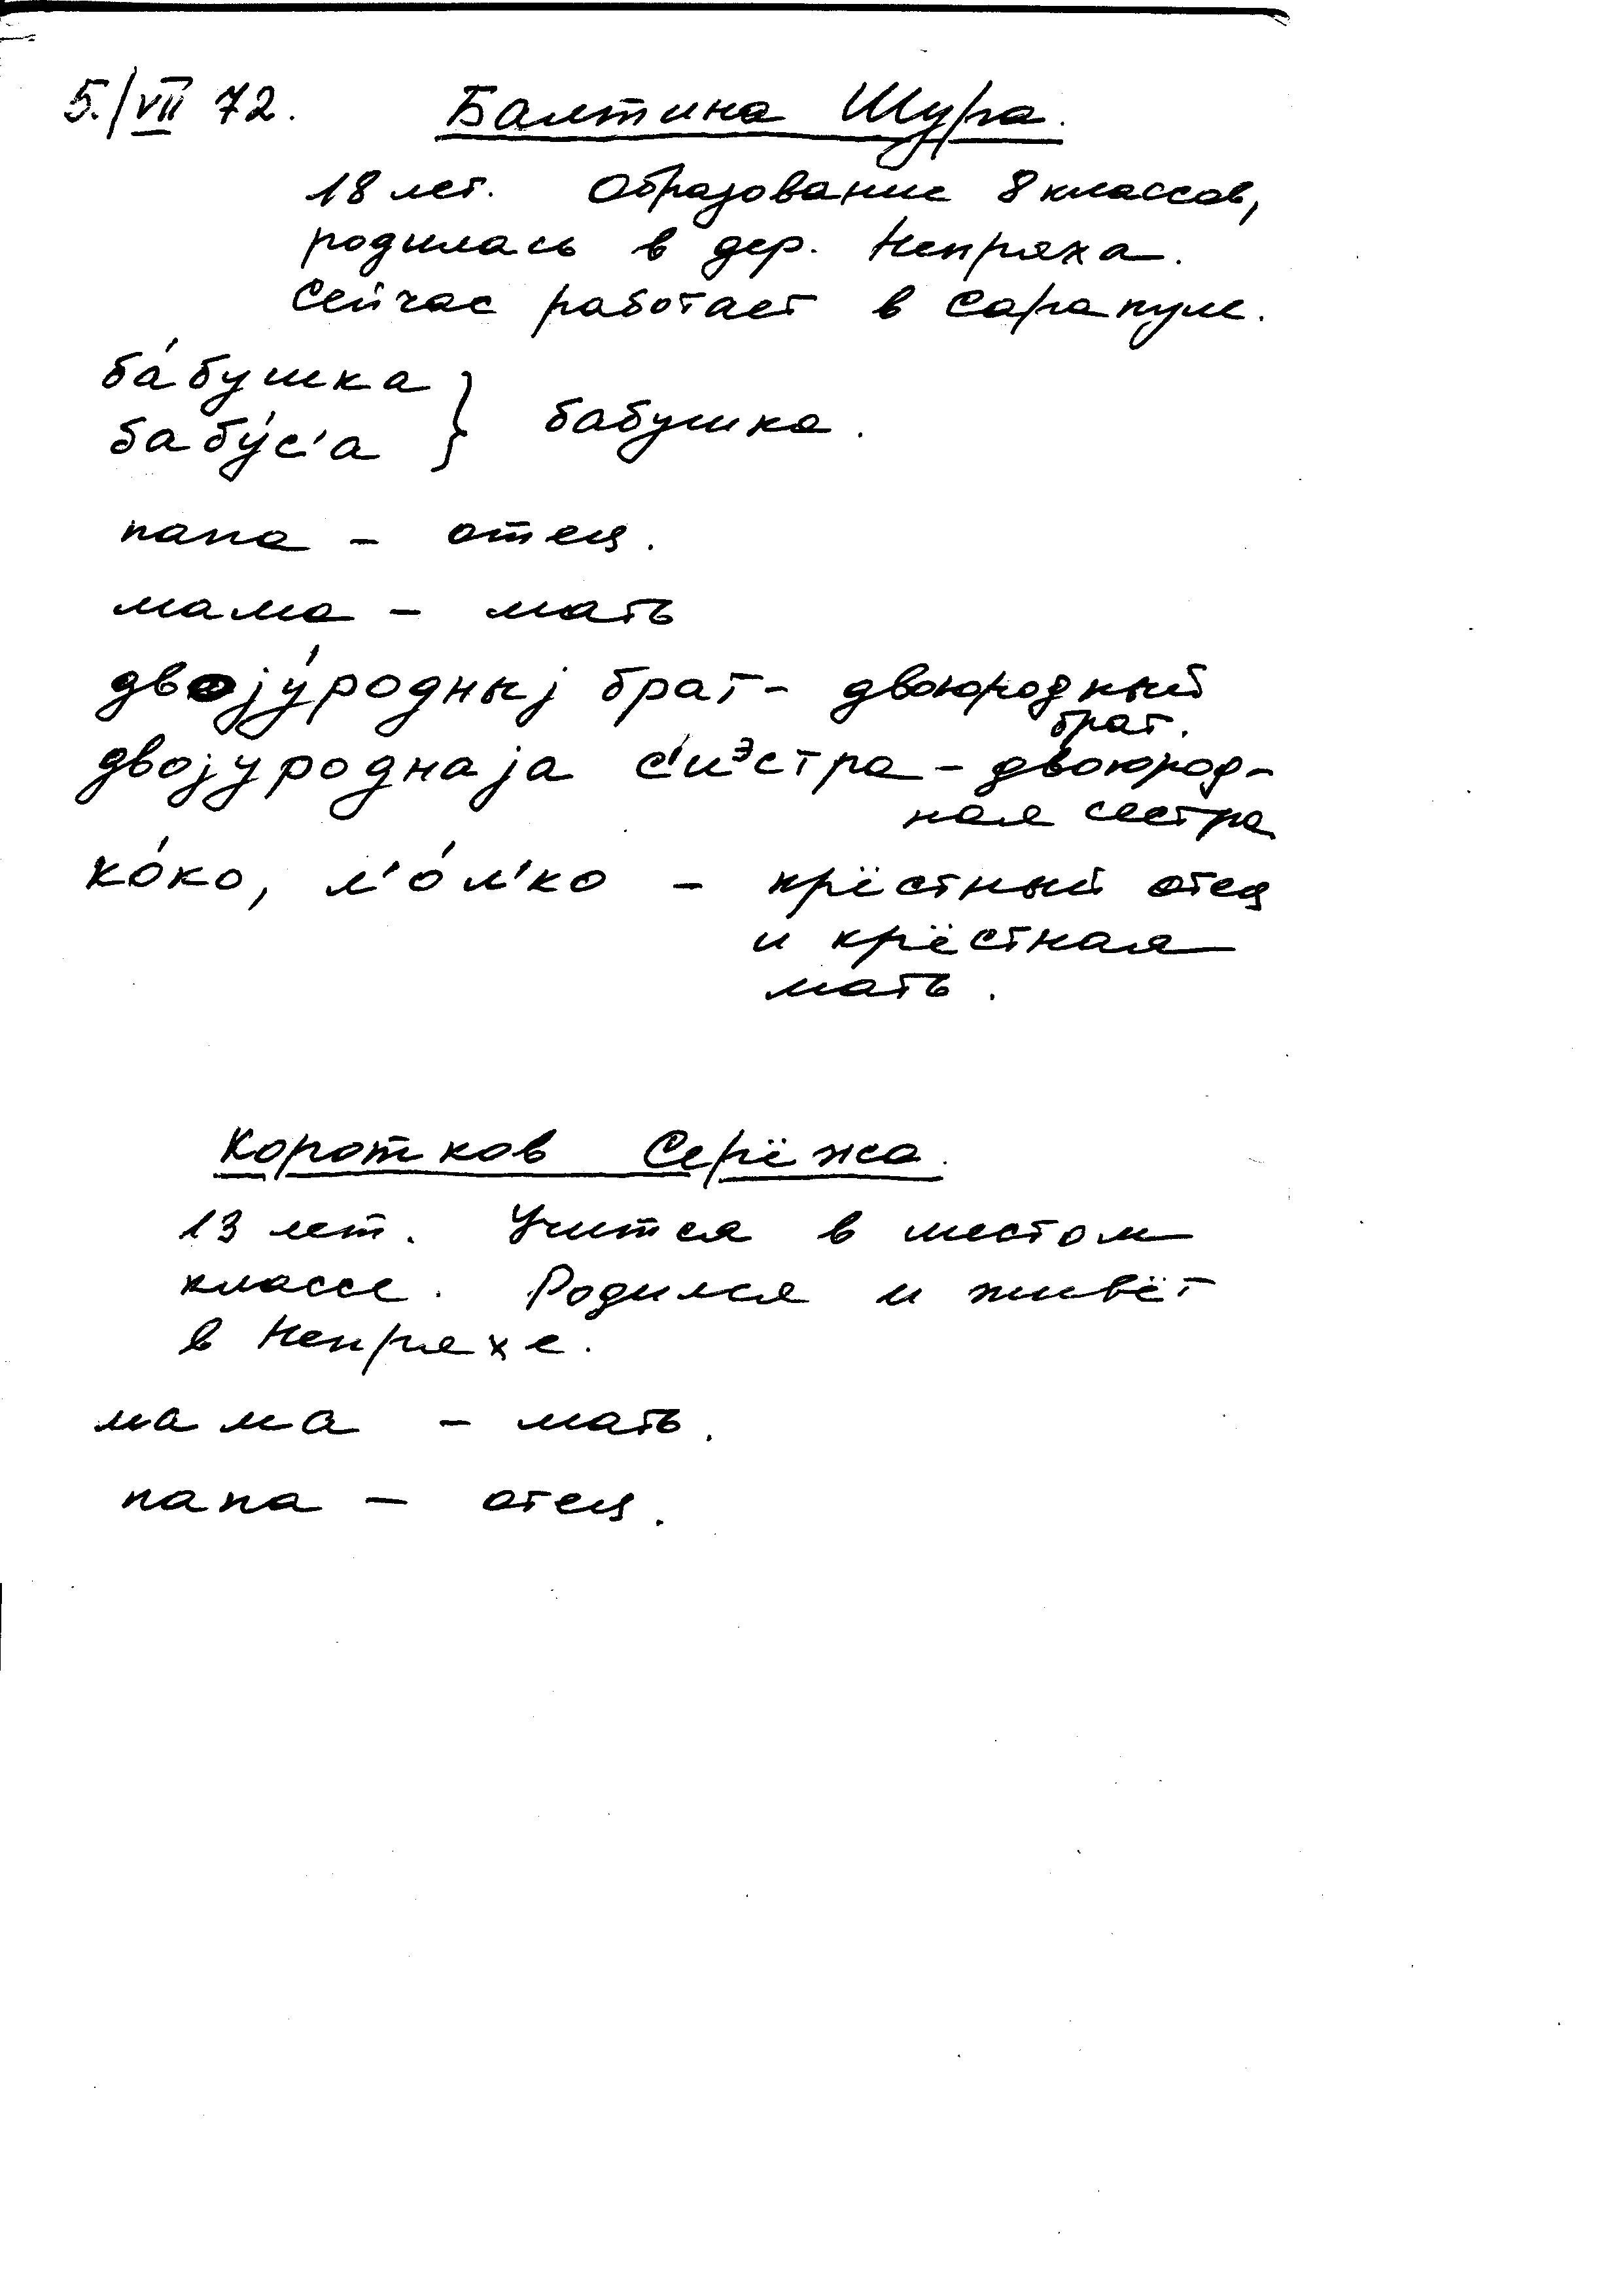 5./VII 72. Балтина Шура.
18 лет. Образование 8 классов,
родилась в дер. Непряха.
Сейчас работает в Сарапуле.
ба́бушка
бабу́с'а } бабушка.
папа – отец.
мама – мать
двоjу́родныj брат – двоюродный
брат.
двоjуроднаjа с'иэстра – двоюрод-
ная сестра
ко́ко, л'о́л'ко – крёстный отец
и крёстная
мать.
Коротков Серёжа.
13 лет. Учится в шестом
классе. Родился и живёт
в Непряхе.
мама – мать.
папа – отец.